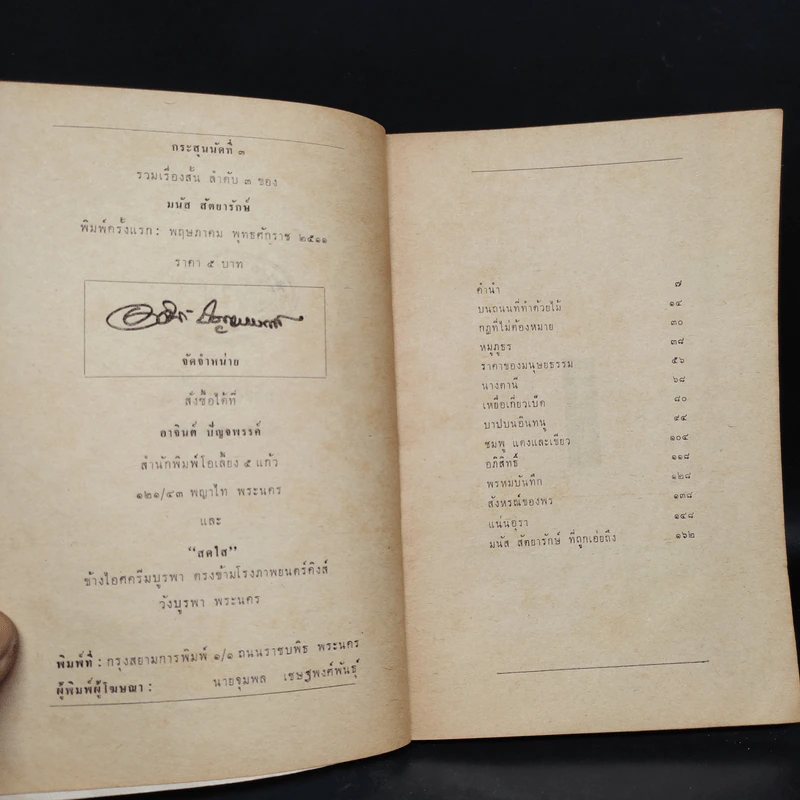 กระสุนนัดที่ ๓
รวมเรื่องสั้น ลำดับ ๓ ของ
มนัส สัตยารักษ์
พิมพ์ครั้งแรก: พฤษภาคม พุทธศักราช ๒๕๑๑
ราคา ๕ บาท
จัดจำหน่าย
สั่งซื้อได้ที่
อาจินต์ ปัญจพรรค์
สำนักพิมพ์โอเลี้ยง ๕ แก้ว
๑๒๑/๔๓ พญาไท พระนคร
และ
“สดใส”
ข้างไอศครีมบูรพา ตรงข้ามโรงภาพยนตร์คิงส์
วังบูรพา พระนคร
พิมพ์ที่: กรุงสยามการพิมพ์ ๑/๑ ถนนราชบพิธ พระนคร
ผู้พิมพ์ผู้โฆษณา: นายจุมพล เชษฐพงศ์พันธุ์
คำนำ ๗
บนถนนที่ทำด้วยไม้ ๑๔
กฎที่ไม่ต้องหมาย ๓๐
หมูภูธร ๓๘
ราคาของมนุษยธรรม ๕๖
นางตานี ๖๘
เหยื่อเกี่ยวเบ็ด ๘๐
บาปบนอินทนู ๙๔
ชมพู แดงและเขียว ๑๐๔
อภิสิทธิ์ ๑๑๘
พรหมบันทึก ๑๒๘
สังหรณ์ของพร ๑๓๘
แน่นอุรา ๑๔๘
มนัส สัตยารักษ์ ที่ถูกเอ่ยถึง ๑๖๒